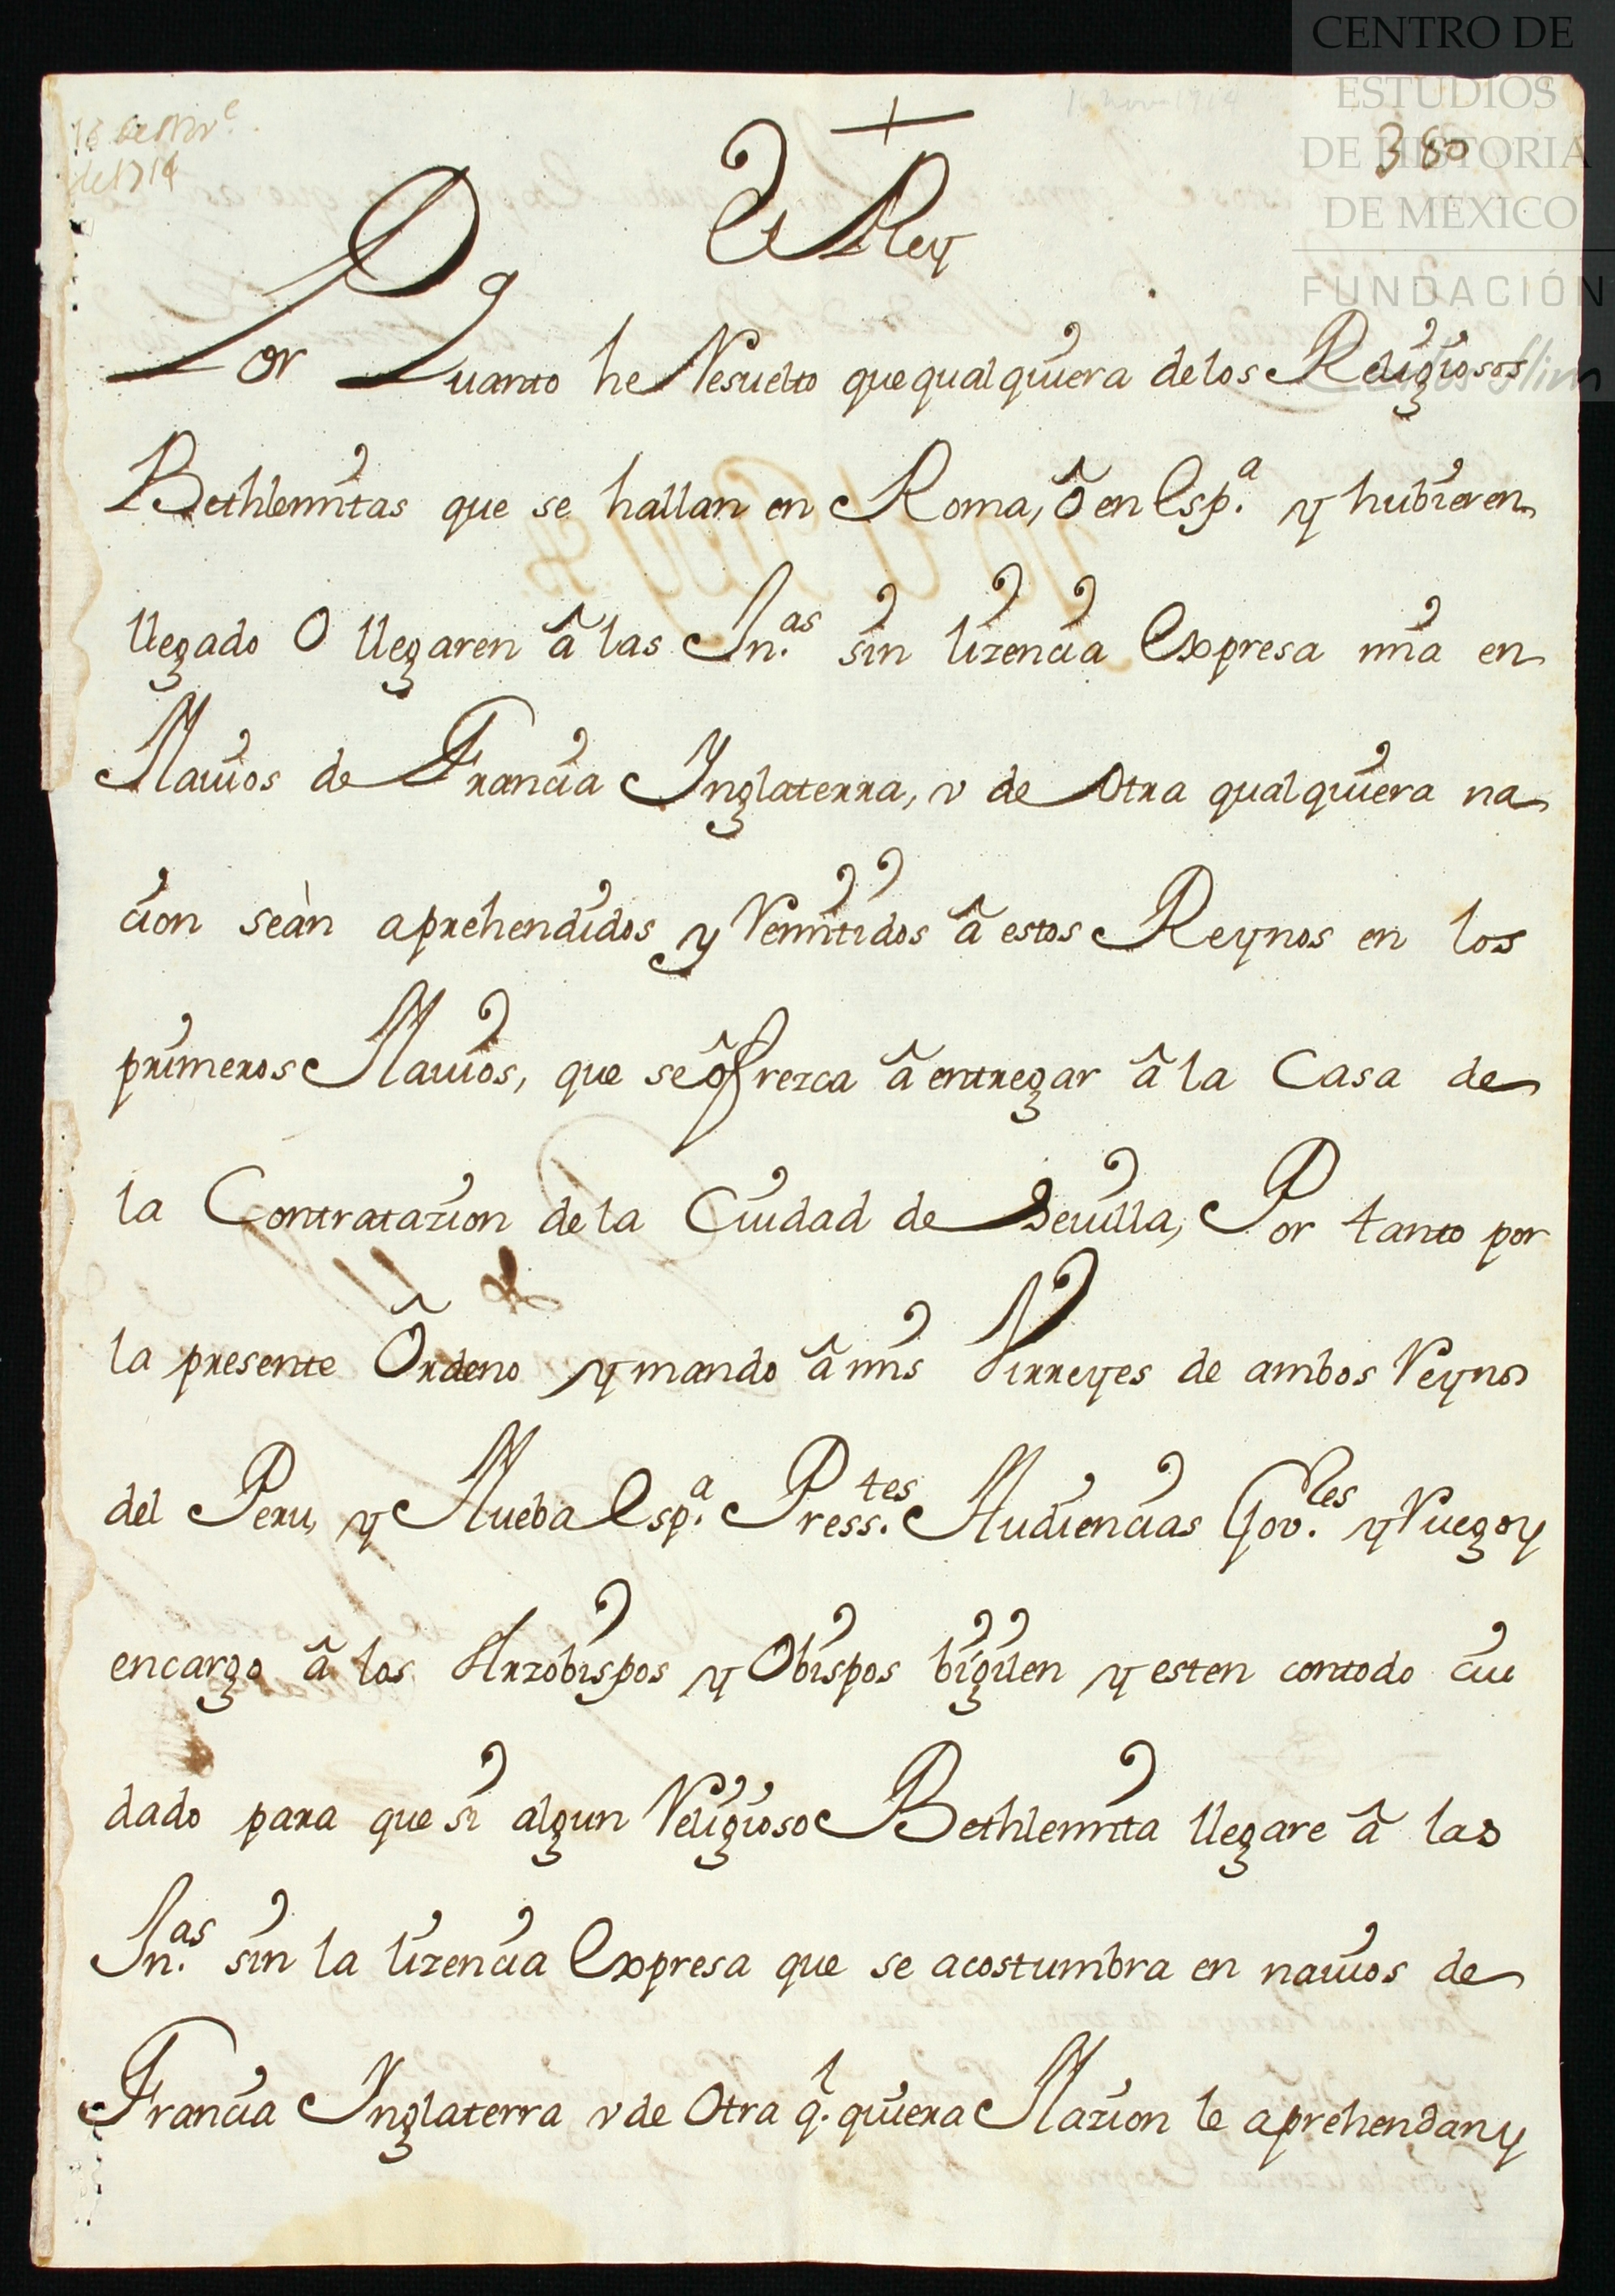 CENTRO DE
ESTUDIOS
DE HISTORIA
DE MEXICO
FUNDACIÓN
16 nov 1714
380
16 de Nov.e
de 1714
+
El Rey
Por Quanto he Resuelto que qualquiera de los Religiosos
Bethlemitas que se hallan en Roma, ô en Esp.a y hubieren
llegado O llegaren â las In.as sin lizencia Expresa mia en
Nauios de Francia Inglaterra, v de Otra qualquiera na
cion seàn aprehendidos y Remitidos â estos Reynos en los
primeros Nauios, que se ôfrezca â entregar â la Casa de
la Contratazion de la Ciudad de Seuilla, Por tanto por
la presente Ôrdeno y mando â mis Virreyes de ambos Reynos
del Peru, y Nueba Esp.a Press.tes Audiencias Gov.les y Ruego y
encargo â los Arzobispos y Obispos bigilen y esten con todo cui
dado para que si algun Religioso Bethlemita llegare â las
In.as sin la lizencia Expresa que se acostumbra en nauios de
Francia Inglaterra v de Otra q.l quiera Nazion le aprehendan y